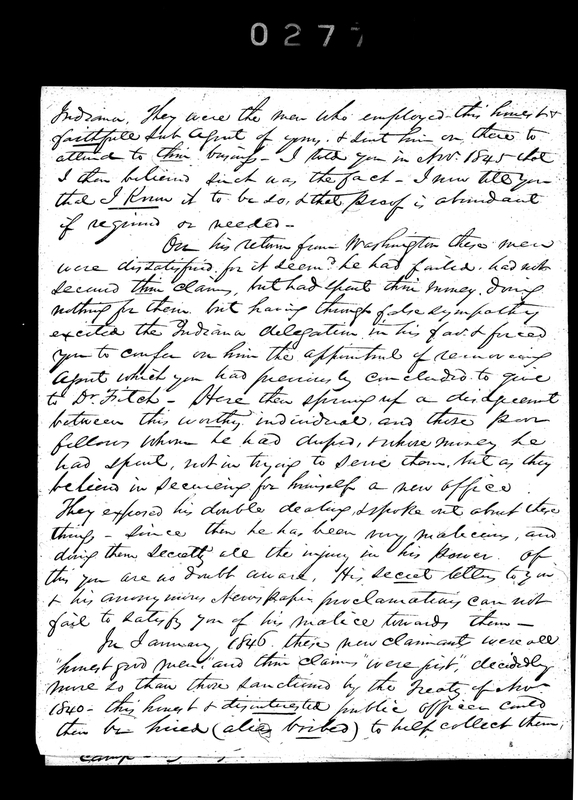 0277
Indiana. They were the men who employed this honest &
faithfull sub Agent of yours. & sent him on there to
attend to their busines - I told you in Nov. 1845 that
I then believed such was the fact - I now tell you
that I Know it to be so, & that proof is abundant
if required or needed -
On his return from Washington these men
were dissatisfied, for it seem'd he had failed. had not
secured their claims, but had spent their money. doing
nothing for them. but having through false sympathy
excited the Indiana delegation in his fav. & forced
you to confer on him the appointment of removeing
Agent which you had previously concluded to give
to Dr. Fitch - Here then sprung up a disagreement
between this worthy individual and those poor
fellows whom he had duped, & whose money he
had spent, not in trying to serve them, but as they
believed in secureing for himself a new office
They exposed his double dealing, & spoke out about these
things - since then he has been very malicious, and
doing them secretly all the injury in his power. Of
this you are no doubt aware. His secret letters to you
& his anonymous Newspaper proclamations can not
fail to satisfy you of his malice towards them -
In January 1846, these new claimants were all
"honest good men," and their claims "were just", decidedly
more so than those sanctioned by the Treaty of Nov
1840 - this honest & disinterested public officer could
then be hired (alias bribed) to help collect them;